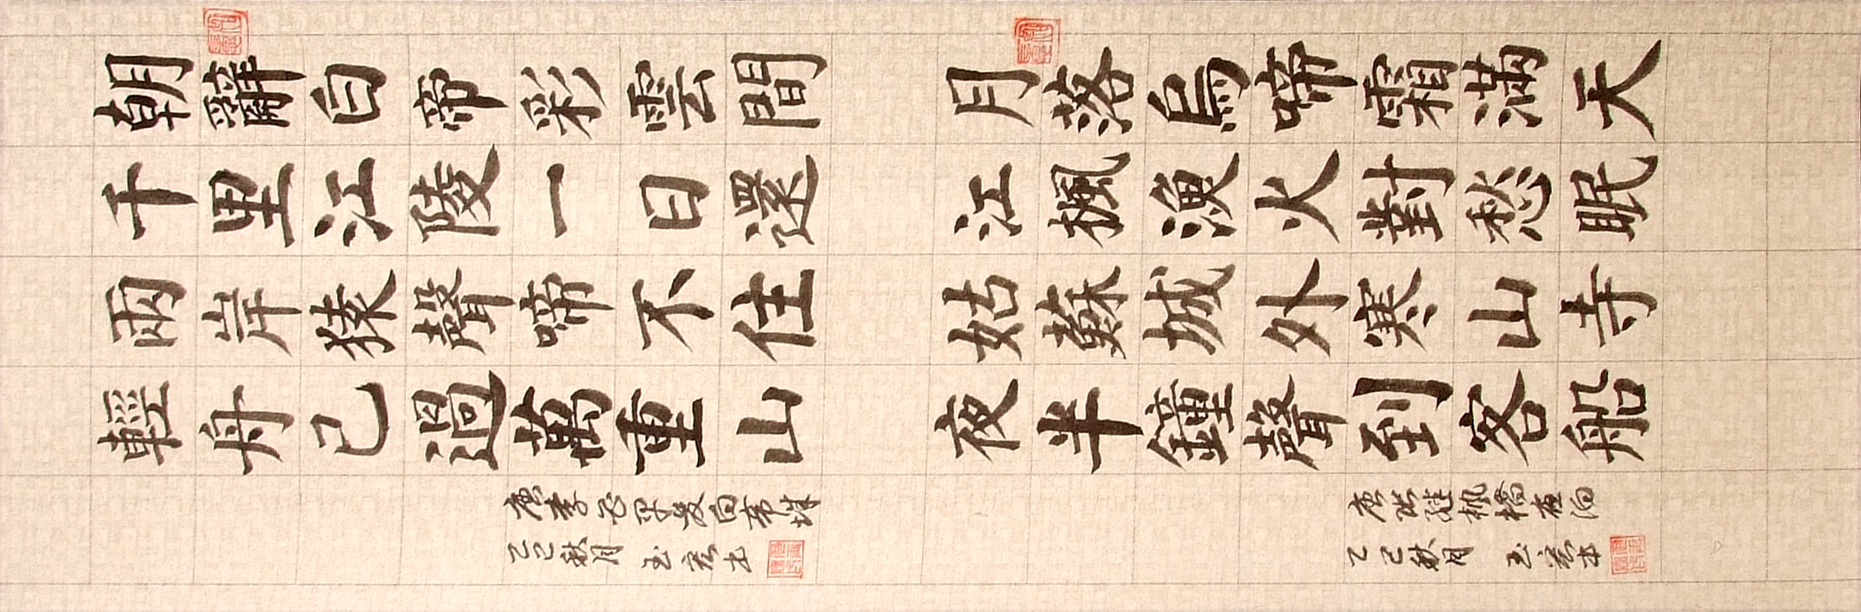 朝辭白帝彩雲間
千里江陵一日還
兩岸猿聲啼不住
輕舟已過萬重山
唐李白早發白帝城
乙巳秋月 玉書
月落烏啼霜滿天
江楓漁火對愁眠
姑蘇城外寒山寺
夜半鐘聲到客船
唐張繼楓橋夜泊
乙巳秋月 玉書